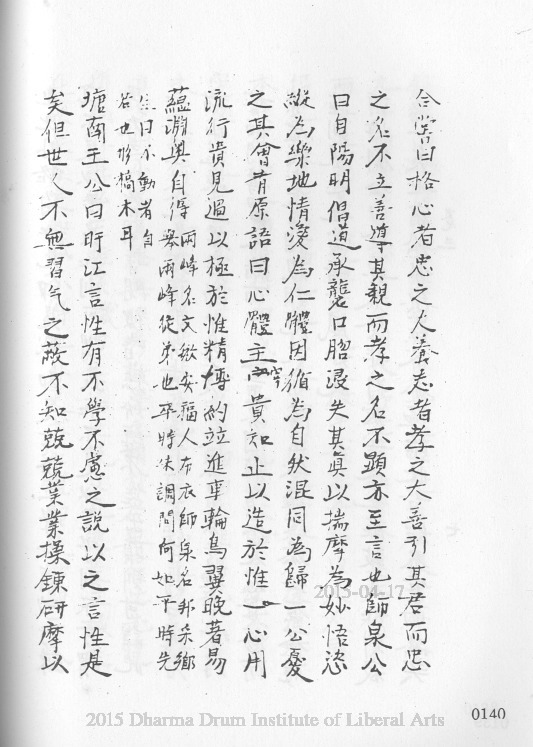 合嘗曰格心者忠之大養志者孝之大善引其君而忠
之名不立善導其親而孝之名不顯亦至言也師泉公
曰自陽明倡道承襲口胳浸失其眞以揣摩為妙悟恣
縱為樂地情愛為仁體因循為自然混同為歸一公憂
之其會昔原語曰心體主宰貴知止以造於惟一心用
流行貴見過以極於惟精博約竝進車輪鳥翼晚著易
蘊淵奧自得
兩峰名文敏安福人布衣師泉名邦采鄉
舉兩峰從弟也平時休調問何如平時先
生曰不動者自
若也形槁木耳
塘南王公曰旴江言性有不學不慮之說以之言性是
矣但世人不無習气之蔽不知兢兢業業操鍊研摩以
2015-04-17
0140
2015 Dharma Drum Institute of Liberal Arts